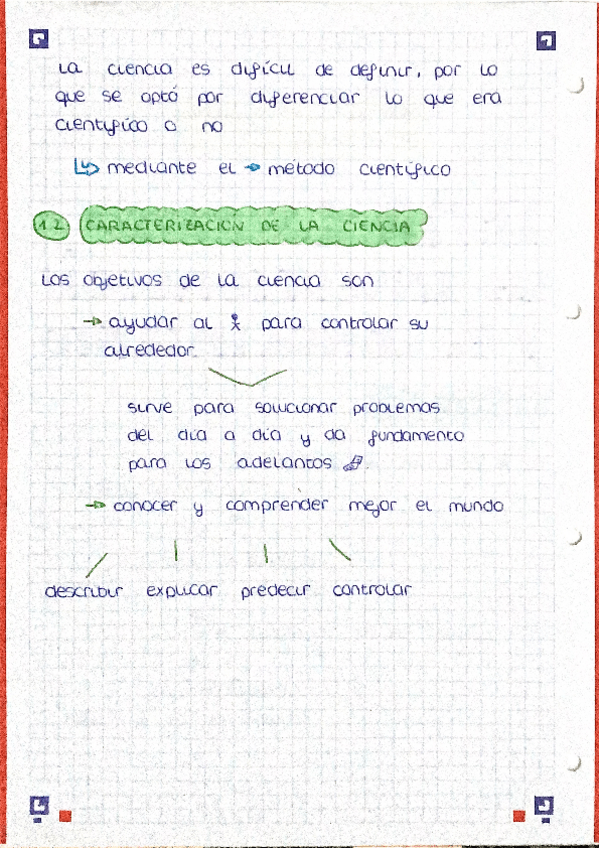 La ciencia es difícil de definir, por lo
que se optó por diferenciar lo que era
científico o no
↳ mediante el → método científico
1.2 CARACTERIZACIÓN DE LA CIENCIA
Los objetivos de la ciencia son
→ ayudar al para controlar su
alrededor.
sirve para solucionar problemas
del día a día y da fundamento
para los adelantos
→ conocer y comprender mejor el mundo
describir explicar predecir controlar